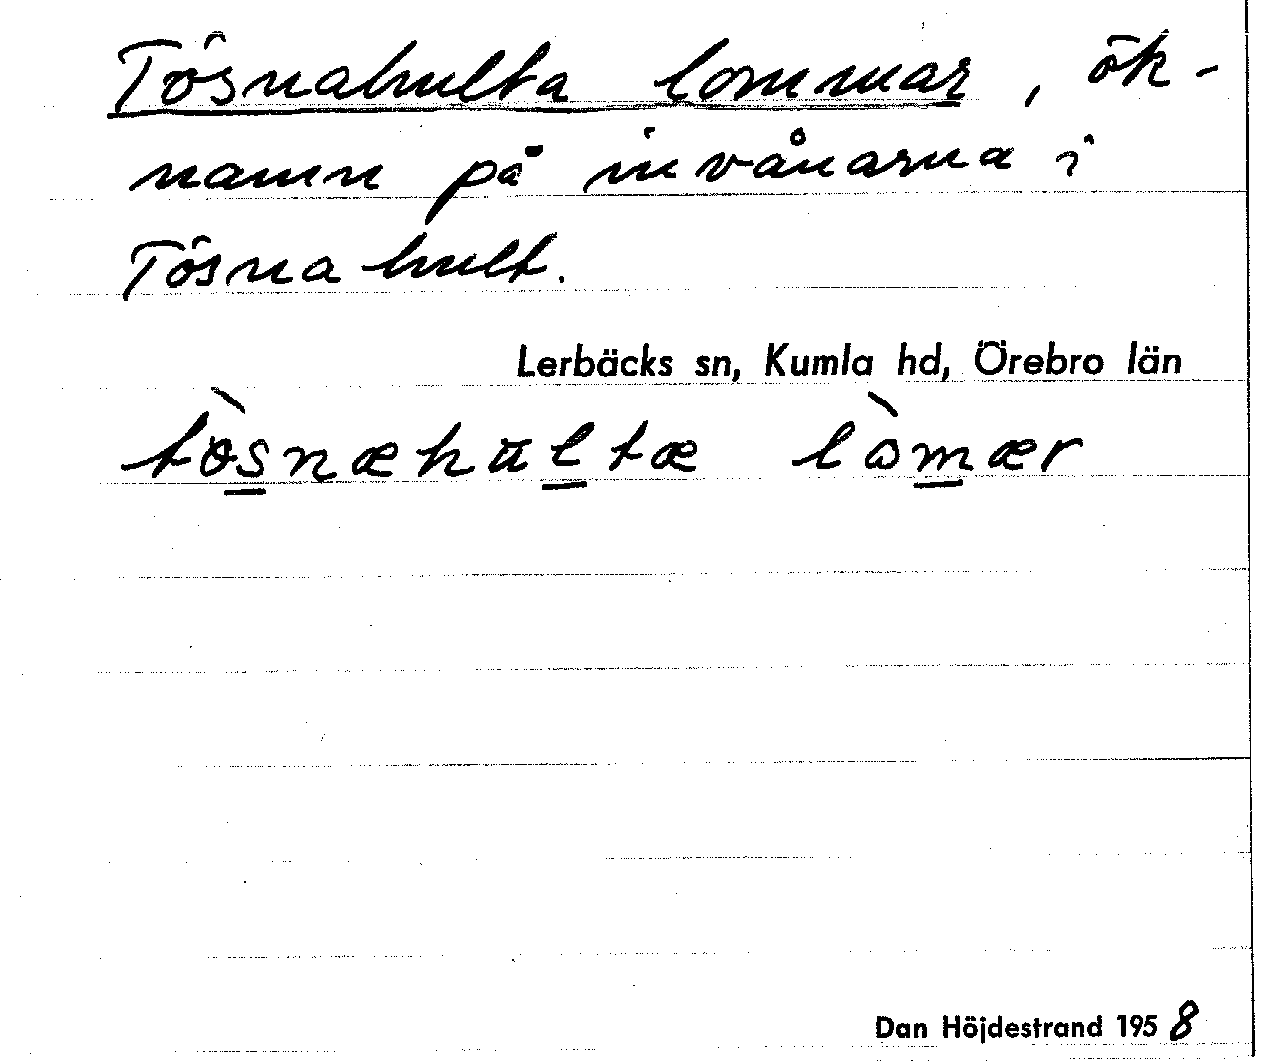 Tösnahulta lommar, ök-
namn på invånarna i
Tösnahult.
Lerbäcks sn, Kumla hd, Örebro län
tɵ̀snæhultæ lòmær
Dan Höjdestrand 1958